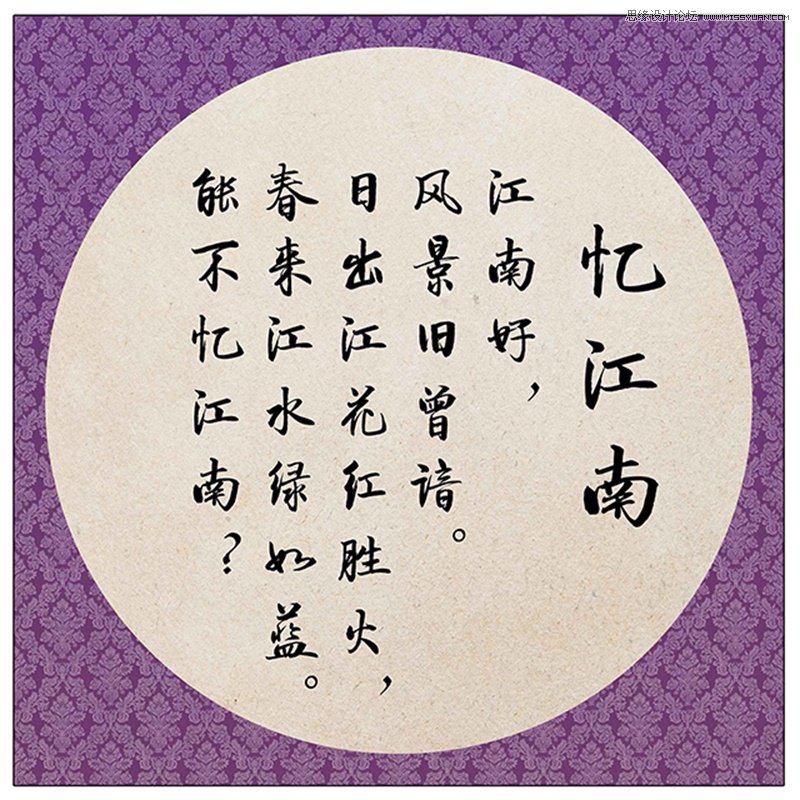 思缘设计论坛 WWW.MISSYUAN.COM
忆江南
江南好，
风景旧曾谙。
日出江花红胜火，
春来江水绿如蓝。
能不忆江南？